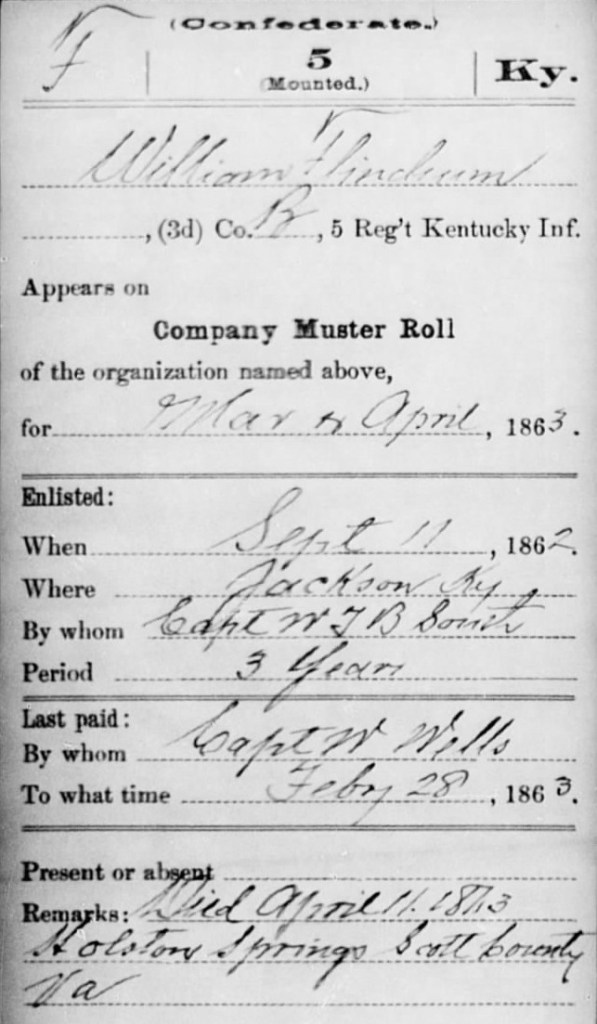 (Confederate.)
F | 5 | Ky.
(Mounted.)
William Flinchum
, (3d) Co. B, 5 Reg't Kentucky Inf.
Appears on
Company Muster Roll
of the organization named above,
for Mar & April, 1863.
Enlisted:
When Sept 11, 1862.
Where Jackson Ky
By whom Capt W T B South
Period 3 Years
Last paid:
By whom Capt W Wells
To what time Feby 28, 1863.
Present or absent
Remarks: Died April 11. 1863
Holston Springs Scott County
Va